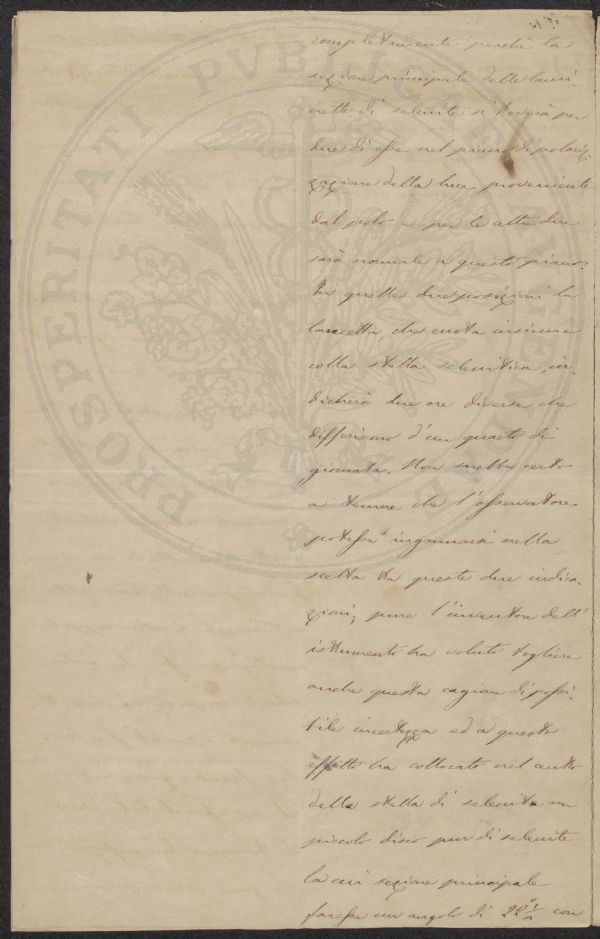 completamente perchè la
sezione principale delle lami-
nette di selenite si troverà per
due di esse nel piano di polariz-
zazione della luce proveniente
dal polo e per le altre due
sarà normale a questo piano.
In quelle due posizioni la
lancetta, che ruota insieme
colla stella selenitica, in-
dicherà due ore diverse, che
differiscono d'un quarto di
giornata. Non sarebbe certo
a temere che l'osservatore
potesse ingannarsi nella
scelta tra queste due indica-
zioni; pure l'inventore dell'
istrumento ha voluto togliere
anche questa cagione di possi-
bile incertezza ed a questo
effetto ha collocato nel centro
della stella di selenite un
piccolo disco pur di selenite
la cui sezione principale
facesse un angolo di 22° ½ con
PROSPERITATI PVBLICAE AVGENDAE